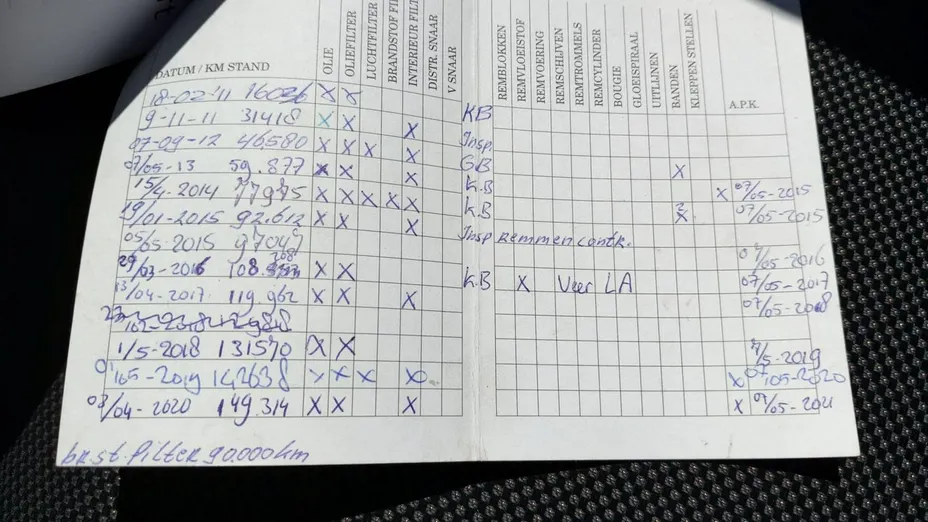 DATUM / KM STAND OLIE OLIEFILTER LUCHTFILTER BRANDSTOF FI INTERIEUR FILT DISTR. SNAAR V SNAAR REMBLOKKEN REMVLOEISTOF REMVOERING REMSCHIJVEN REMTROMMELS REMCYLINDER BOUGIE GLOEISPIRAAL UITLIJNEN BANDEN KLEPPEN STELLEN A.P.K.
18-02-'11 16036 X X KB
9-11-11 31418 X X X Insp.
07-09-12 46.580 X X X X GB
07/05-13 59.877 X X X K.B X
15/4-2014 77975 X X X X X K.B X 07/05-2015
19/01-2015 92.612 X X X 2 X 07/05-2015
05/05-2015 97047 Insp Remmen contr.
29/03-2016 108. 268 X X 07/05-2016
13/04-2017 119.962 X X X K.B X Veer LA 07/05-2017
07/05-2018
1/5-2018 131570 X X 7/5-2019
01/05-2019 142638 X X X X X 07/05-2020
03/04-2020 149.314 X X X X 07/05-2021
br.st.filter 90.000km